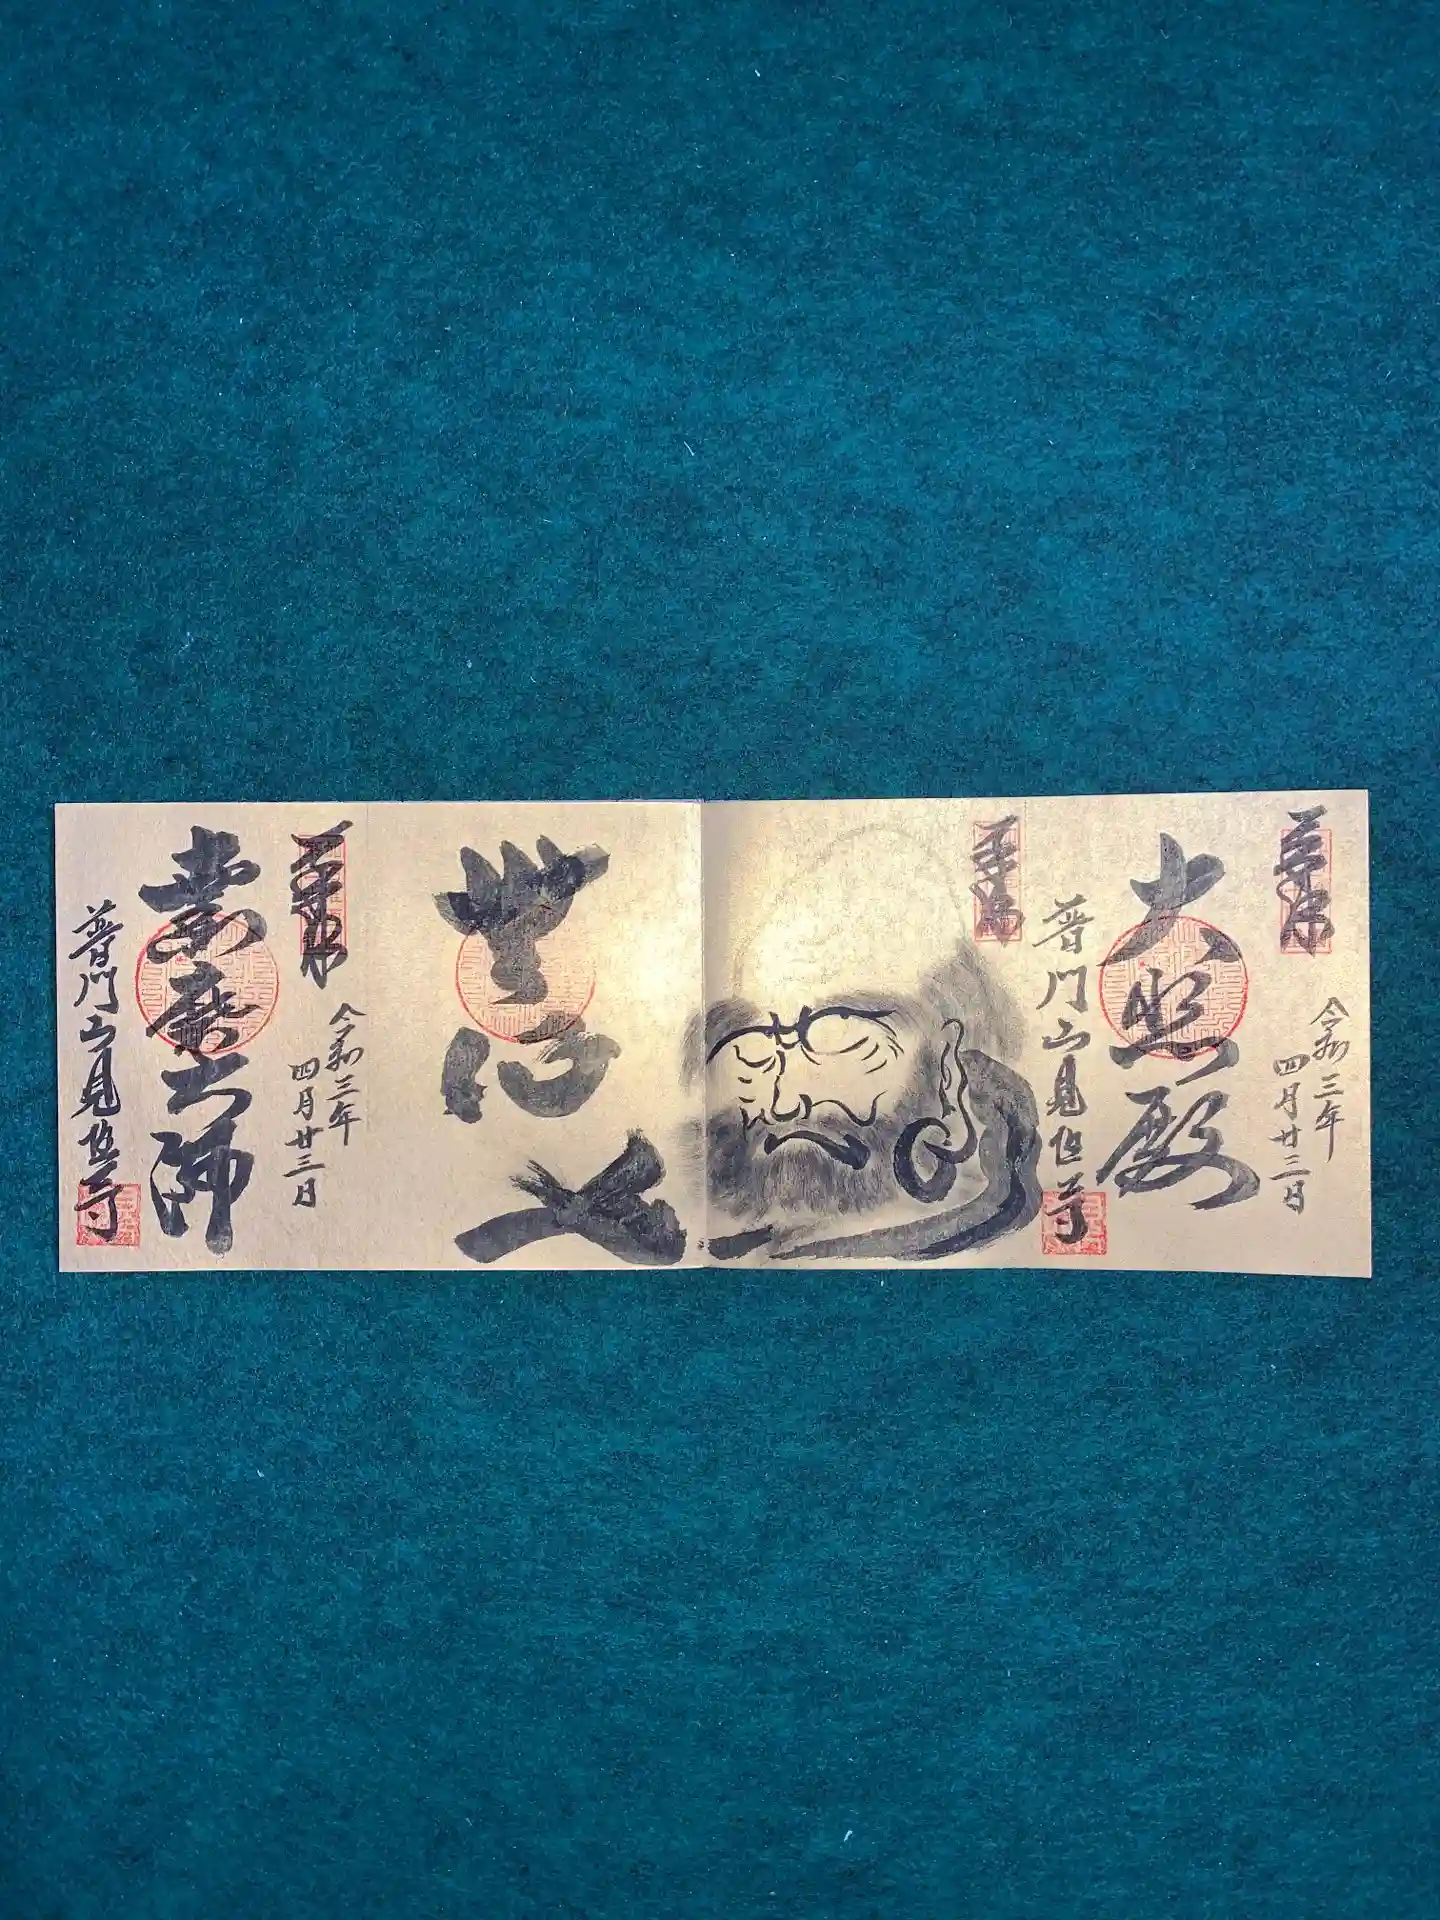 奉拝
令和三年
四月廿三日
大悲殿
普門山見性寺
奉拝
奉拝
令和三年
四月廿三日
達磨大師
普門山見性寺